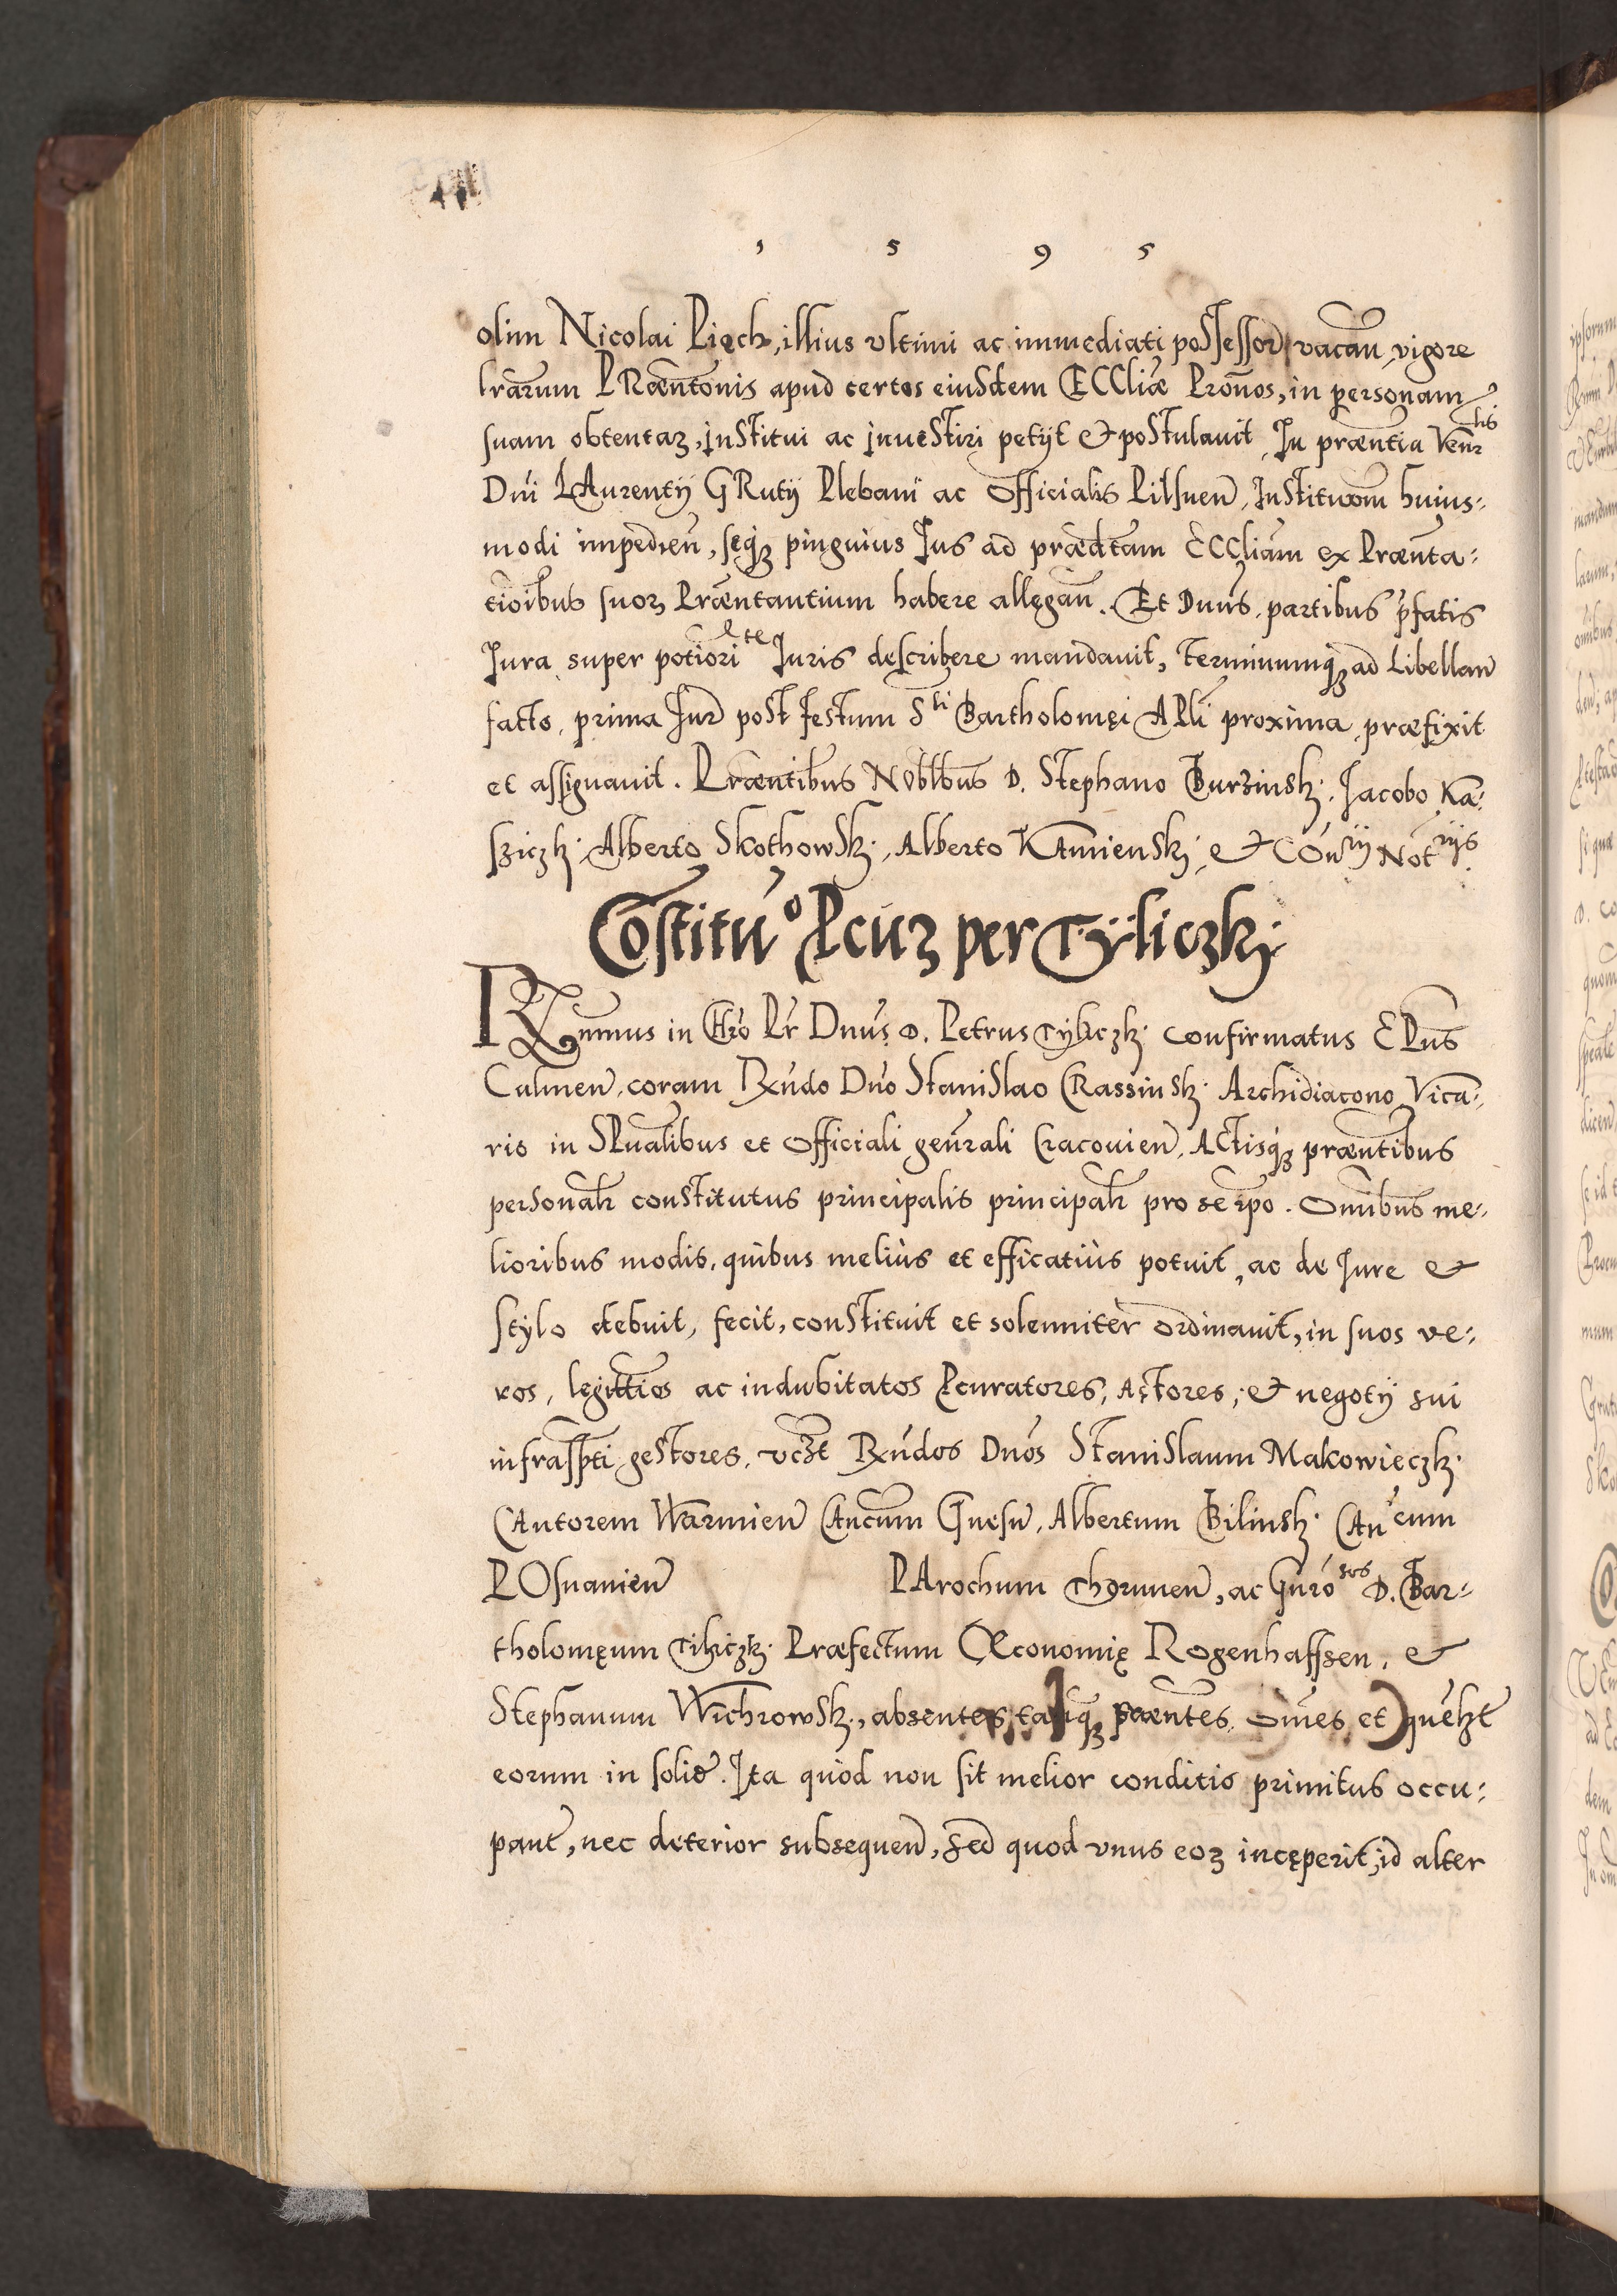 1 5 9 5
olim Nicolai Pięch, illius ultimi ac immediati possessor vacan vigore
lrarum PRæntonis apud certos eiusdem ECCliæ Pronos, in personam
suam obtentaꝝ, institui ac inuestiri petijt et postulauit, In præntia Venrlis
Dni LAurentij GRutij Plebani ac Officialis Pilsnen, Instituom huius-
modi impedien, seqꝫ pinguius Ius ad prædctam ECCliam ex Prænta-
tioibus suoꝝ Præntantium habere allęgan. Et Dnus partibus pfatis
Jura super potioritte Juris describere mandauit, terminumqꝫ ad Libellan
facto, prima Jurd post festum Sti Bartholomęi APli proxima præfixit
et assignauit. Præntibus Noblbus D. Stephano Burzinskj. Jacobo Ka-
sziczkj Alberto Skothowskj, Alberto KAmienskj, et COnrijs Notrijs.
Costituo Pcuꝝ per Tÿliczkj
RXmmus in Chro Pr Dnus D. Petrus Tyliczkj confirmatus EPus
Culmen, coram Rxndo Dno Stanislao CRassinskj Archidiacono Vica-
rio in SPualibus et Officiali genrali Cracouien, ACtisqꝫ præntibus
personalr constitutus principalis principalr pro se ipo. Omnibus me-
lioribus modis, quibus meliùs et efficatiùs potuit, ac de Jure et
stylo debuit, fecit, constituit et solenniter ordinauit, in suos ve-
ros, legittios ac indubitatos Pcuratores, Actores, et negotij sui
infrasspti gestores, vczt Rxndos Dnos Stanislaum Makowieczkj
CAntorem Warmien CAncum Gnesn, Albertum Bilinskj CAncum
POsnanien PArochum Thorunen, ac Gnrosos D. Bar-
tholomęum Tiliczkj Præfectum Œconomię Rogenhaffsen, et
Stephanum Wichrowskj, absentes, tanqꝫ præntes, omes et quelzt
eorum in solid. Ita quod non sit melior conditio primitus occu-
pant, nec deterior subsequen, Sed quod vnus eoꝝ incęperit, id alter